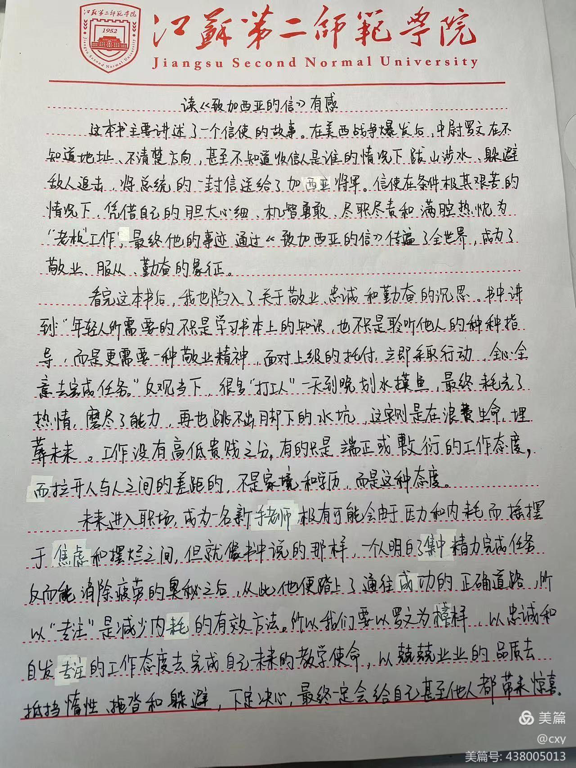 江苏第二师范学院
1952
江蘇第二師範學院
Jiangsu Second Normal University
读《致加西亚的信》有感
这本书主要讲述了一个信使的故事。在美西战争爆发后,中尉罗文在不
知道地址、不清楚方向,甚至不知道收信人是谁的情况下,跋山涉水、躲避
敌人追击,将总统的一封信送给了加西亚将军。信使在条件极其艰苦的
情况下,凭借自己的胆大心细、机智勇敢、尽职尽责和满腔热忱为
“老板”工作,最终他的事迹通过《致加西亚的信》传遍了全世界,成为了
敬业、服从、勤奋的象征。
看完这本书后,我也陷入了关于敬业、忠诚和勤奋的沉思。书中讲
到“年轻人所需要的不只是学习书本上的知识,也不只是聆听他人的种种指
导,而是更需要一种敬业精神,面对上级的托付,立即采取行动,全心全
意去完成任务。”反观当下,很多“打工人”一天到晚划水摸鱼,最终耗光了
热情,磨尽了能力,再也跳不出脚下的水坑,这实则是在浪费生命、埋
葬未来。工作没有高低贵贱之分,有的只是端正或敷衍的工作态度,
而拉开人与人之间的差距的,不是家境和学历,而是这种态度。
未来进入职场,成为一名新手老师极有可能会由于压力和内耗而摇摆
于焦虑和摆烂之间,但就像书中说的那样,一个人明白了集中精力完成任务
反而能消除疲劳的奥秘之后,从此他便踏上了通往成功的正确道路,所
以“专注”是减少内耗的有效方法。所以我们要以罗文为榜样,以忠诚和
自发、专注的工作态度去完成自己未来的教学使命,以兢兢业业的品质去
抵挡惰性、拖沓和躲避,下定决心,最终一定会给自己甚至他人都带来惊喜.
美篇
@cxy
美篇号: 438005013